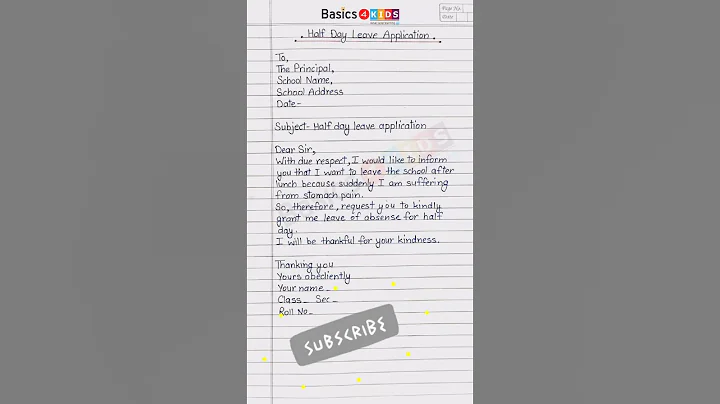 Basics 4 KIDS
Page No.
Date
Half Day Leave Application
To,
The Principal,
School Name,
School Address
Date-
Subject- Half day leave application
Dear Sir,
With due respect, I would like to inform
you that I want to leave the school after
lunch because suddenly I am suffering
from stomach pain.
So, therefore, request you to kindly
grant me leave of absense for half
day.
I will be thankful for your kindness.
Thanking you
Yours obediently
Your name_
Class_ Sec_
Roll No_
SUBSCRIBE